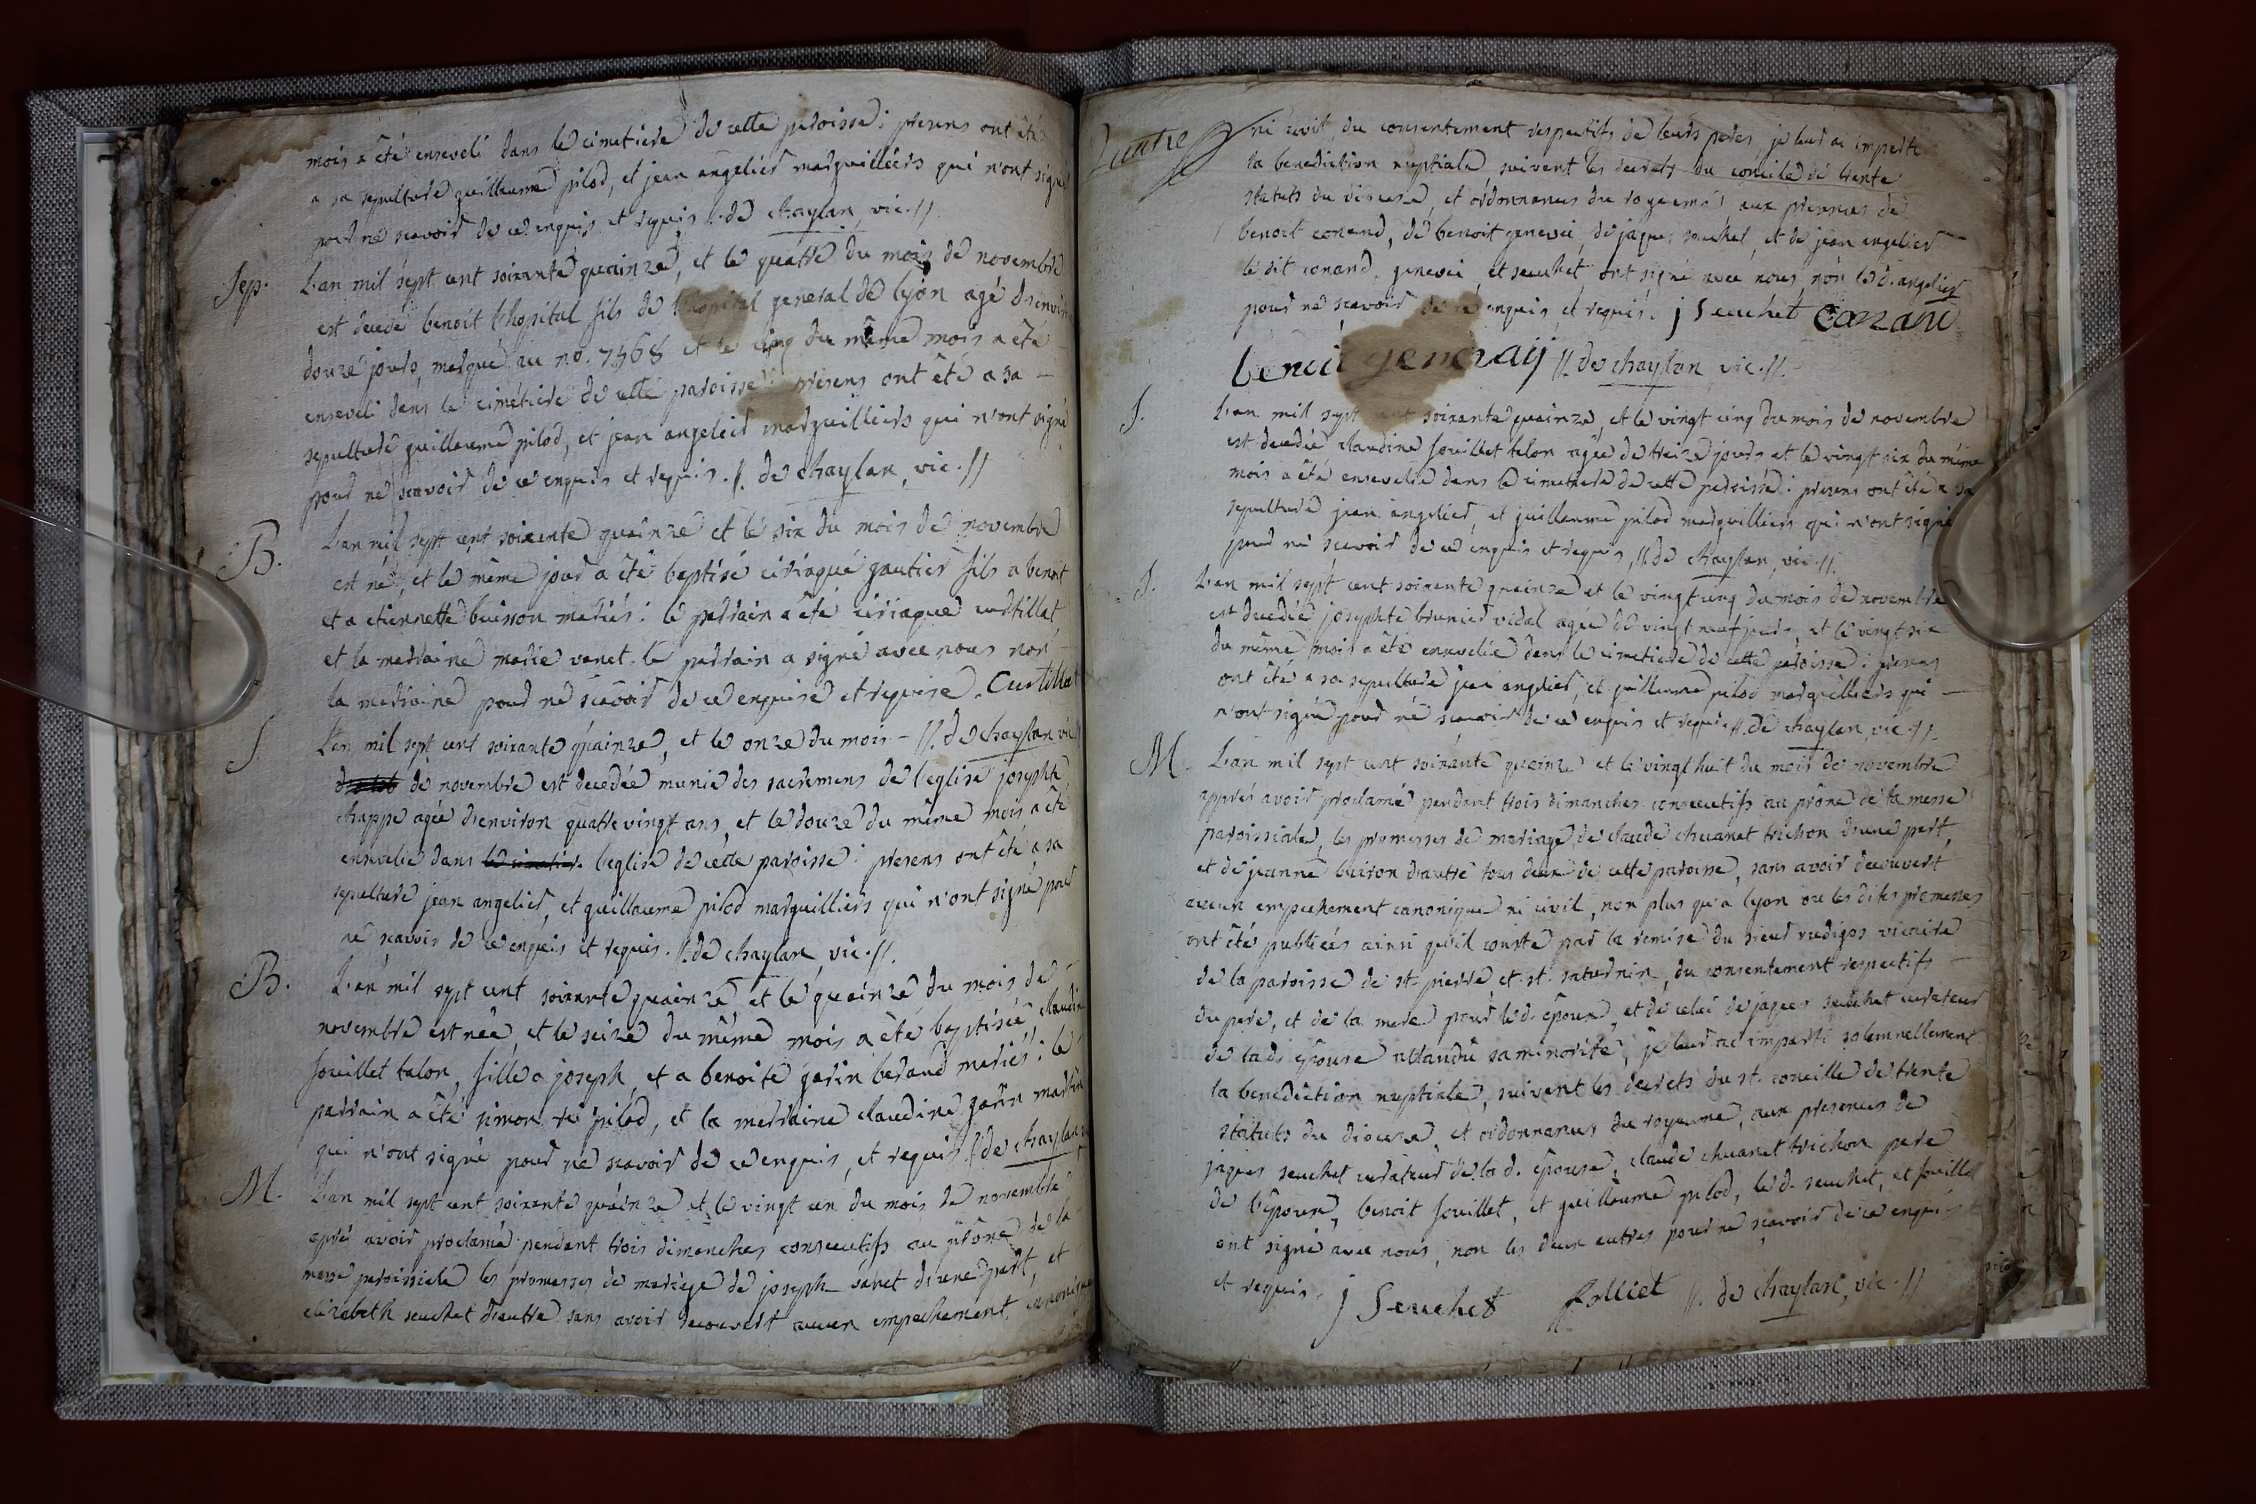 mois a été enseveli dans le cimetiere de cette paroisse : presens ont été
a sa sepulture guillaume pilod, et jean angelier marguilliers qui n'ont signé
pour ne scavoir de ce enquis et requis. de chaylan, vic.//
Sep. L'an mil sept cent soixante quainze, et le quatre du mois de novembre
est decedé benoit l'hopital fils de l'hopital general de lyon agé d'environ
douze jours, marqué au no. 7468 et le cinq du même mois a été
enseveli dans le cimétiere de cette paroisse : présens ont été a sa
sepulture guillaume pilod, et jean angelier marguilliers qui n'ont signé
pour ne scavoir de ce enquis et requis. //. de chaylan, vic.//
B. L'an mil sept cent soixante quainze et le six du mois de novembre
est né, et le même jour a été baptisé ciriaque gautier fils a benoit
et a etiennette buisson mariés : le parrain a été ciriaque curtillat
et la marraine marie vanet. le parrain a signé avec nous non
la marraine pour ne scavoir de ce enquise et requise. Curtillat
S. L'an mil sept cent soixante quainze, et le onze du mois - //. de chaylan vic//
de novembre est decedée munie des sacremens de l'eglise josephte
chappe agée d'environ quatre vingt ans, et le douze du même mois a été
ensevelie dans le cimetiere l'eglise de cette paroisse : presens ont été a sa
sepulture jean angelier, et guillaume pilod marguilliers qui n'ont signé pour
ne scavoir de ce enquis et requis. //. de chaylan, vic.//.
B. L'an mil sept cent soixante quainze et le quainze du mois de
novembre est née, et le seize du même mois a été baptisée claudine
fouillet talon, fille a joseph, et a benoite garin beraud mariés : le
parrain a été simon pilod, et la marraine claudine garin
qui n'ont signé pour ne scavoir de ce enquis, et requis. //. de chaylan
M. L'an mil sept cent soixante quainze et le vingt un du mois de novembre
aprés avoir proclamé pendant trois dimanches consecutifs au prône de la
messe paroissiale les promesses de mariage de joseph vanet d'une part, et
elizabeth seuchet d'autre sans avoir decouvert aucun empechement canonique
ni civil du consentement respectifs de leurs peres, je leur ai imparti
la benediction nuptiale, suivent les decrets du concile de trente
statuts du diocese, et ordonnances du royaume, aux presences de
benoit conand, de benoit genevai, de jaques seuchet, et de jean angelier
le dit conand, genevai, et seuchet, ont signé avec nous, non le d. angelier
pour ne scavoir de ce enquis, et requis. j Seuchet Conand
benoit genevaij //. de chaylan vic.//.
S. L'an mil sept cent soixante quainze, et le vingt cinq du mois de novembre
est decedée claudine fouillet talon agée de treize jours et le vingt six du même
mois a été ensevelie dans le cimetiere de cette paroisse : presens ont été a sa
sepulture jean angelier, et guillaume pilod marguilliers qui n'ont signé
pour ne scavoir de ce enquis et requis, //. de chaylan, vic.//.
S. L'an mil sept cent soixante quainze et le vingt cinq du mois de novembre
est decedée josephte brunier vidal agée de vingt neuf jours, et le vingt six
du même mois a été ensevelie dans le cimetiere de cette paroisse : presens
ont été a sa sepulture jean angelier, et guillaume pilod marguilliers qui
n'ont signé pour ne scavoir de ce enquis et requis //. de chaylan, vic.//.
M. L'an mil sept cent soixante quainze et le vingt huit du mois de novembre
apprés avoir proclamé pendant trois dimanches consecutifs au prône de la messe
paroissiale, les promesses de mariage de claude chuanet trichon d'une part,
et de jeanne buison d'autre tous deux de cette paroisse, sans avoir decouvert
aucun empechement canonique ni civil, non plus qu'a lyon ou les dites promesses
ont été publiées ainsi qu'il conste par la remise du sieur rudigos vicaire
de la paroisse de st. pierre et st. saturnin, du consentement respectifs
du pere, et de la mere pour le d. époux, et de celui de jaques seuchet curateur
de lad. épouse attandu sa minorité, je leur ai imparti solemnellement
la benediction nuptiale, suivent les decrets du st. concille de trente
statuts du diocese, et ordonnances du royaume, aux presences de
jaques seuchet curateur de la d. épouse, claude chuanet trichon pere
de l'époux, benoit fouillet, et guillaume pilod, le d. seuchet, et fouillet
ont signé avec nous, non les deux autres pour ne scavoir de ce enquis
et requis. j Seuchet folliet //. de chaylan, vic.//